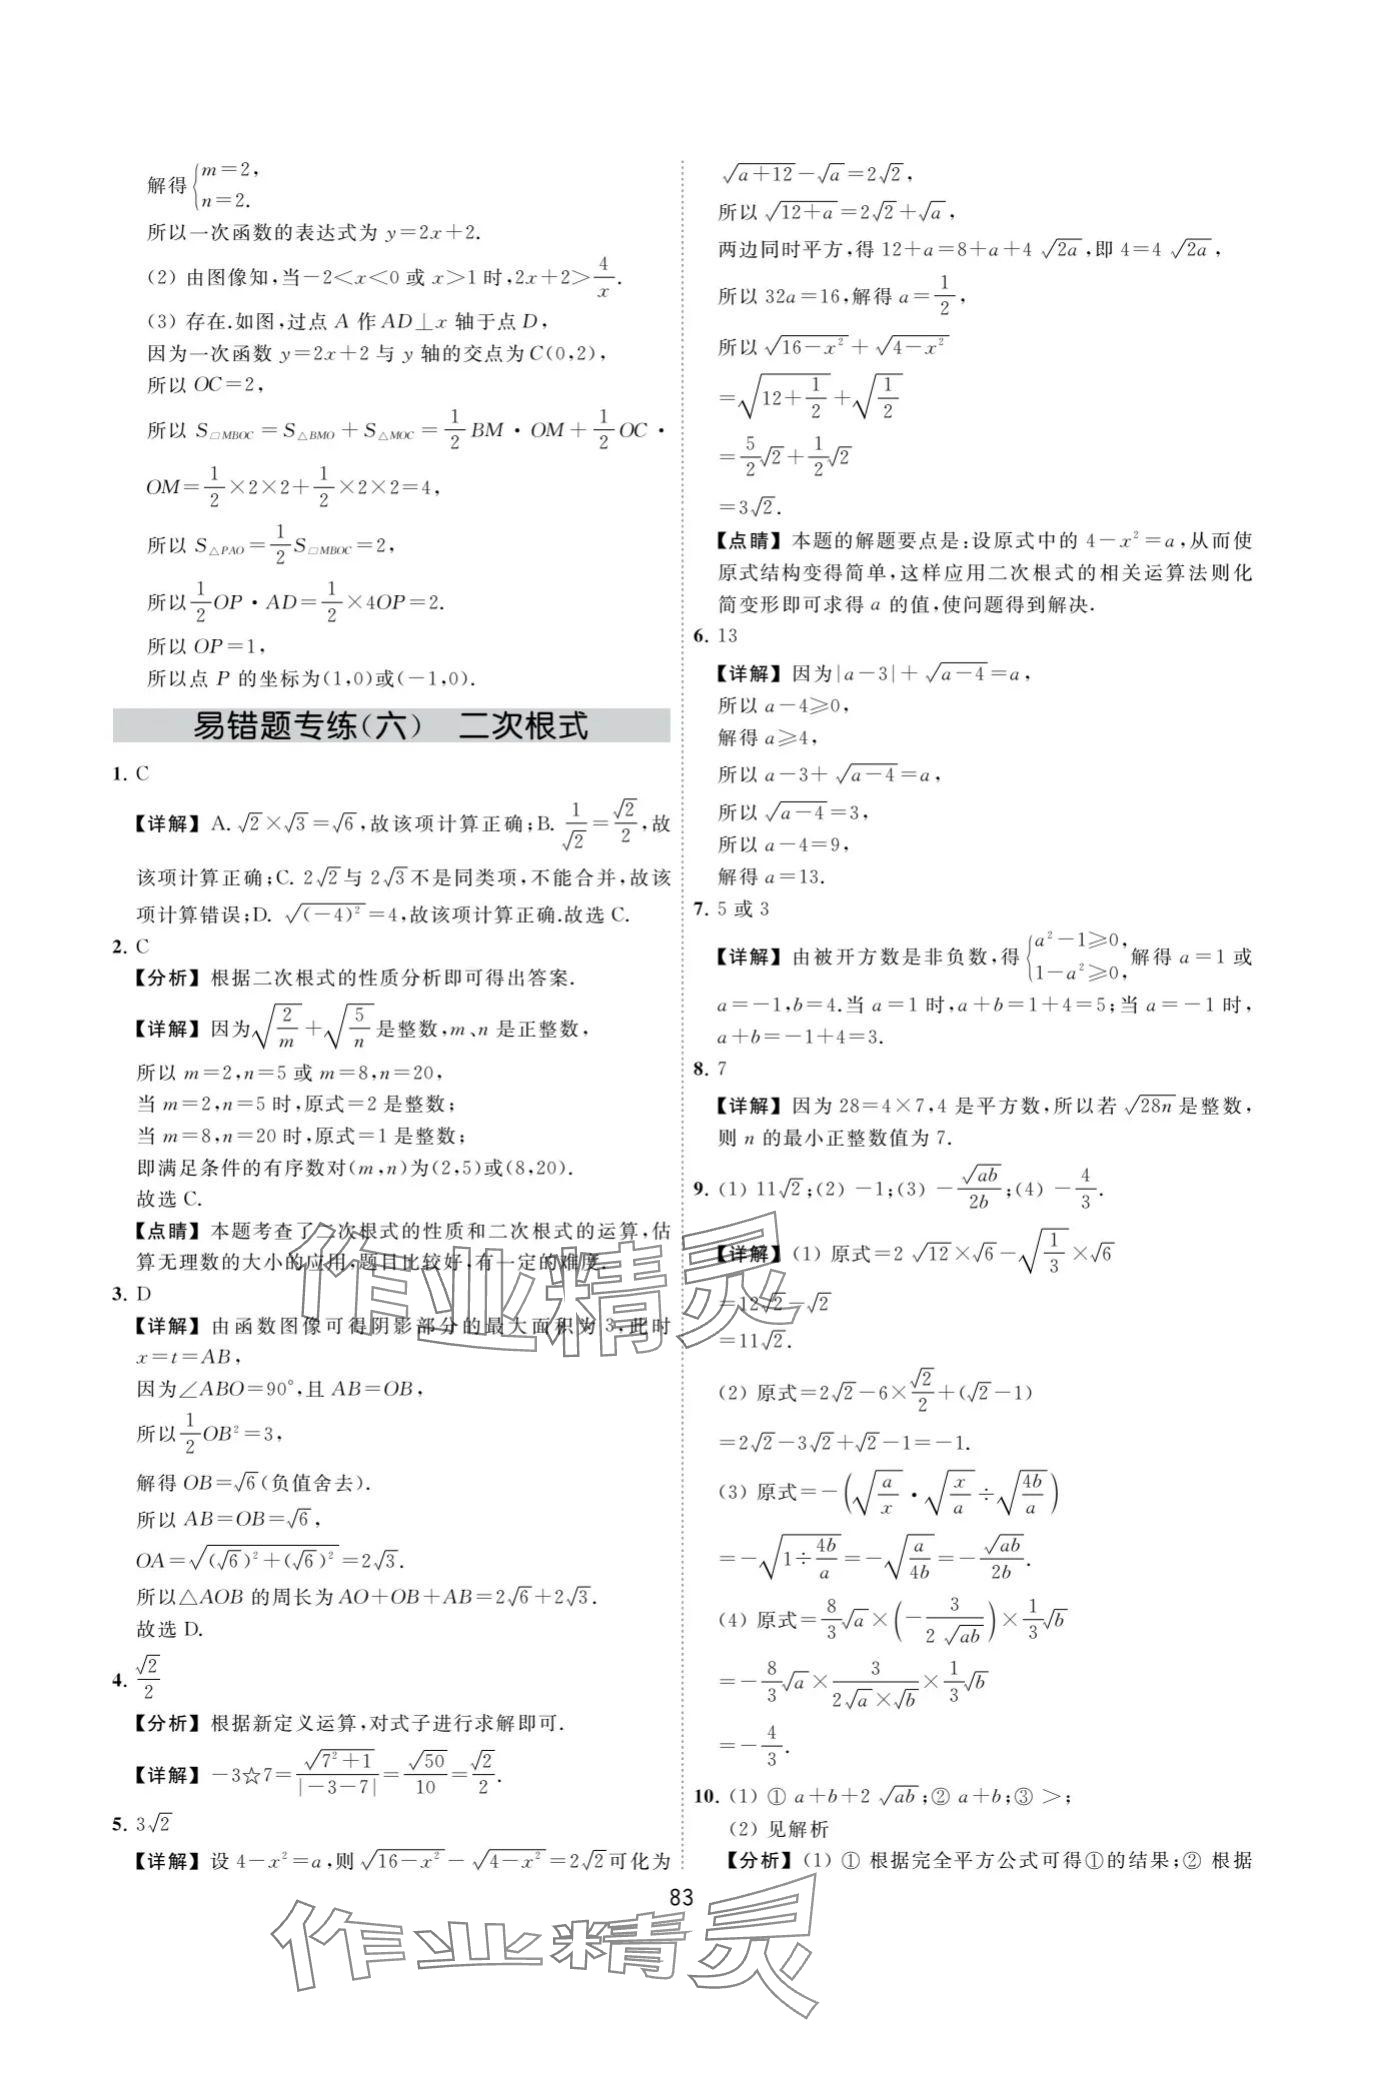 解得{m=2,
n=2.
所以一次函数的表达式为 y=2x+2.
(2) 由图像知,当-2<x<0 或 x>1 时,2x+2>4/x.
(3) 存在.如图,过点 A 作AD⊥x 轴于点D,
因为一次函数 y=2x+2 与 y 轴的交点为C(0,2),
所以 OC=2,
所以 S□MBOC=S△BMO+S△MOC=1/2 BM·OM+1/2 OC·
OM=1/2×2×2+1/2×2×2=4,
所以 S△PAO=1/2 S□MBOC=2,
所以1/2 OP·AD=1/2×4OP=2.
所以 OP=1,
所以点 P 的坐标为(1,0)或(-1,0).
易错题专练(六) 二次根式
1. C
【详解】A. √2×√3=√6,故该项计算正确;B. 1/√2=√2/2,故
该项计算正确;C. 2√2与 2√3不是同类项,不能合并,故该
项计算错误;D. √(-4)²=4,故该项计算正确.故选 C.
2. C
【分析】根据二次根式的性质分析即可得出答案.
【详解】因为√(2/m)+√(5/n)是整数,m、n 是正整数,
所以 m=2,n=5 或 m=8,n=20,
当 m=2,n=5 时,原式=2 是整数;
当 m=8,n=20 时,原式=1 是整数;
即满足条件的有序数对(m,n)为(2,5)或(8,20).
故选 C.
【点睛】本题考查了二次根式的性质和二次根式的运算,估
算无理数的大小的应用,题目比较好,有一定的难度.
3. D
【详解】由函数图像可得阴影部分的最大面积为 3,此时
x=t=AB,
因为∠ABO=90°,且 AB=OB,
所以1/2 OB²=3,
解得 OB=√6(负值舍去).
所以 AB=OB=√6,
OA=√((√6)²+(√6)²)=2√3.
所以△AOB 的周长为AO+OB+AB=2√6+2√3.
故选 D.
4. √2/2
【分析】根据新定义运算,对式子进行求解即可.
【详解】-3☆7=√(7²+1)/|-3-7|=√50/10=√2/2.
5. 3√2
【详解】设 4-x²=a,则√(16-x²)-√(4-x²)=2√2可化为
√(a+12)-√a=2√2,
所以√(12+a)=2√2+√a,
两边同时平方,得 12+a=8+a+4√(2a),即 4=4√(2a),
所以 32a=16,解得 a=1/2,
所以√(16-x²)+√(4-x²)
=√(12+1/2)+√(1/2)
=5/2√2+1/2√2
=3√2.
【点睛】本题的解题要点是:设原式中的 4-x²=a,从而使
原式结构变得简单,这样应用二次根式的相关运算法则化
简变形即可求得 a 的值,使问题得到解决.
6. 13
【详解】因为|a-3|+√(a-4)=a,
所以 a-4≥0,
解得 a≥4,
所以 a-3+√(a-4)=a,
所以√(a-4)=3,
所以 a-4=9,
解得 a=13.
7. 5 或 3
【详解】由被开方数是非负数,得{a²-1≥0, 1-a²≥0,解得 a=1 或
a=-1,b=4.当 a=1 时,a+b=1+4=5;当 a=-1 时,
a+b=-1+4=3.
8. 7
【详解】因为 28=4×7,4 是平方数,所以若√(28n)是整数,
则 n 的最小正整数值为 7.
9. (1) 11√2;(2) -1;(3) -√(ab)/2b;(4) -4/3.
【详解】(1) 原式=2√12×√6-√(1/3)×√6
=12√2-√2
=11√2.
(2) 原式=2√2-6×√2/2+(√2-1)
=2√2-3√2+√2-1=-1.
(3) 原式=-(√(a/x)·√(x/a)÷√(4b/a))
=-√(1÷4b/a)=-√(a/4b)=-√(ab)/2b.
(4) 原式=8/3√a×(-3/(2√(ab)))×1/3√b
=-8/3√a×3/(2√a×√b)×1/3√b
=-4/3.
10. (1) ① a+b+2√(ab);② a+b;③ >;
(2) 见解析
【分析】(1) ① 根据完全平方公式可得①的结果;② 根据
83
作业精灵
作业精灵